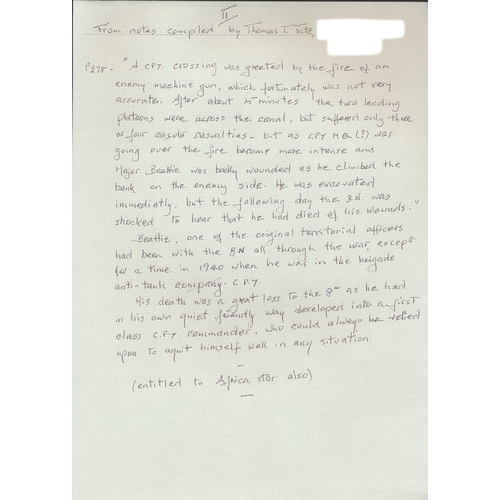 II
From notas compiled by Thomas T.
P278 - "A CPY. crossing was greeted by the fire of an
enemy machine gun, which fortunately was not very
accurate. After about 15 minutes the two leading
platoons were across the canal, but suffered only three
or four casualties - but as CPY HQ (?) was
going over the fire became more intense and
Major Beattie was badly wounded as he climbed the
bank on the enemy side. He was evacuated
immediatly, but the following day the B.N. was
shocked to hear that he had died of his wounds."
Beattie, one of the original territorial officers
had been with the B.N. all through the war, except
for a time in 1940 when he was in the brigade
anti-tank company. C.P.Y.
His death was a great loss to the as he had
in his own quiet way developed into a first
class C.P.Y commander, who could always be relied
upon to aquit himself well in any situation.
(entitled to Africa star also)